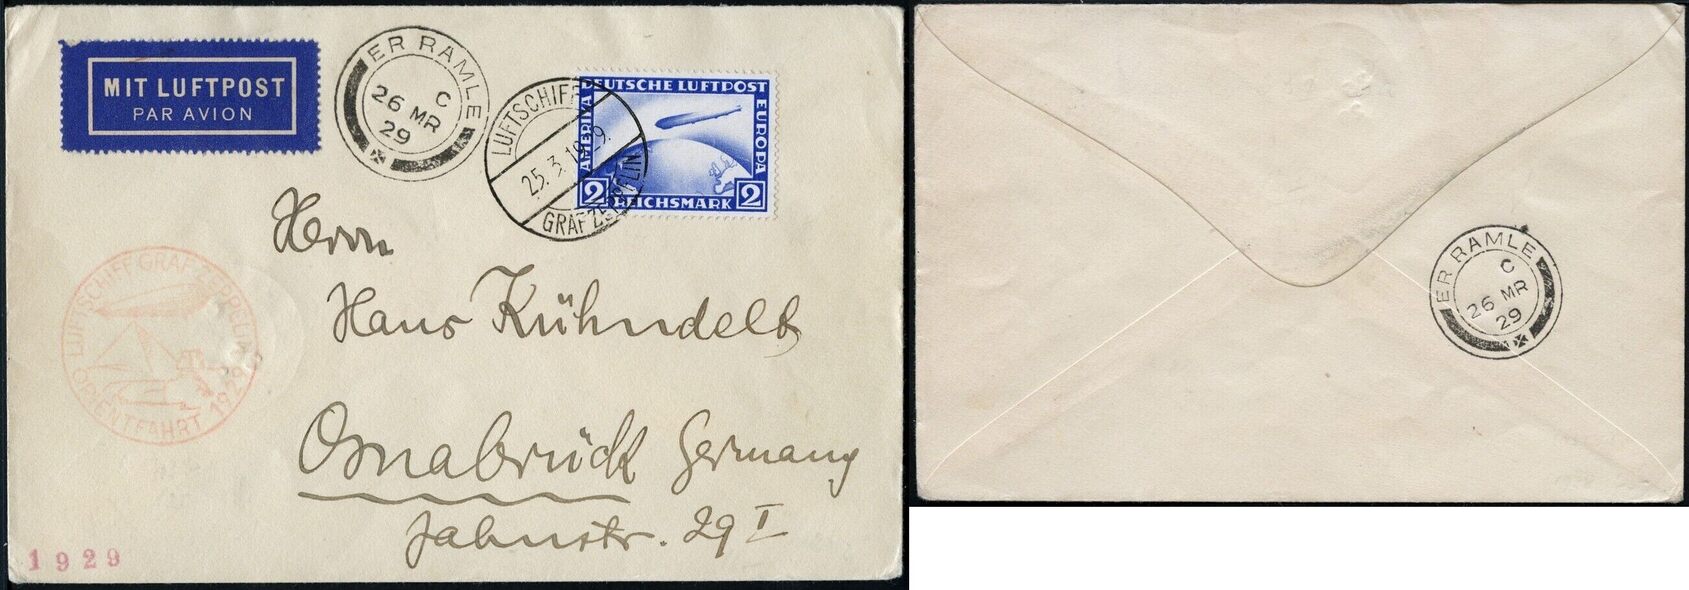 MIT LUFTPOST
PAR AVION
ER RAMLE
C
26 MR
29
LUFTSCHIFF
25.3.1929.
GRAF ZEPPELIN
DEUTSCHE LUFTPOST
AMERIKA
EUROPA
2 REICHSMARK 2
Herrn
Hans Kühndelt
Osnabrück Germany
Jahnstr. 29 I
LUFTSCHIFF GRAF ZEPPELIN
ORIENTFAHRT 1929
1929
ER RAMLE
C
26 MR
29